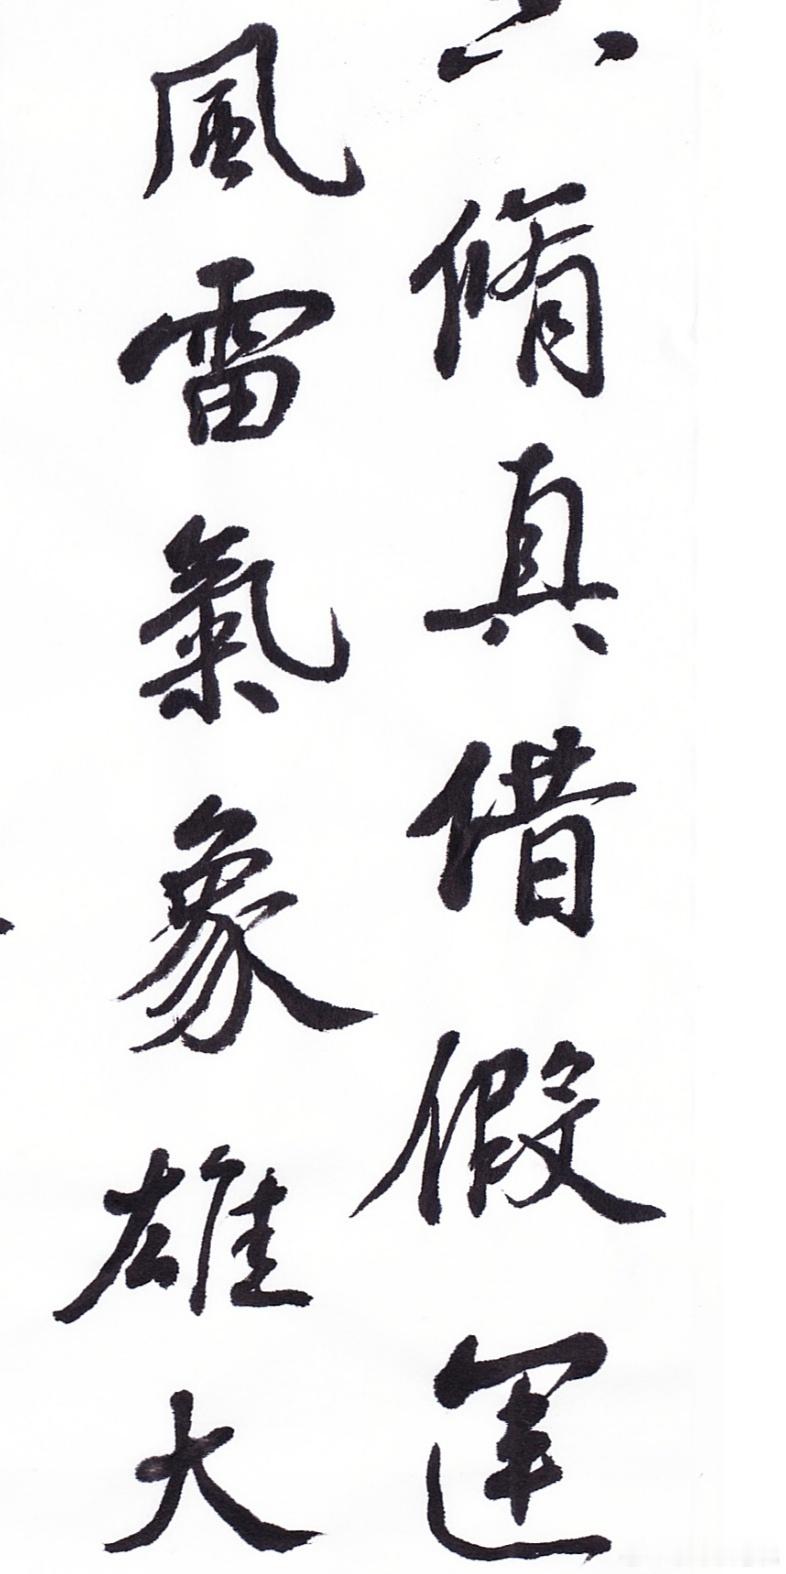 脩真借假運
風雷氣象雄大